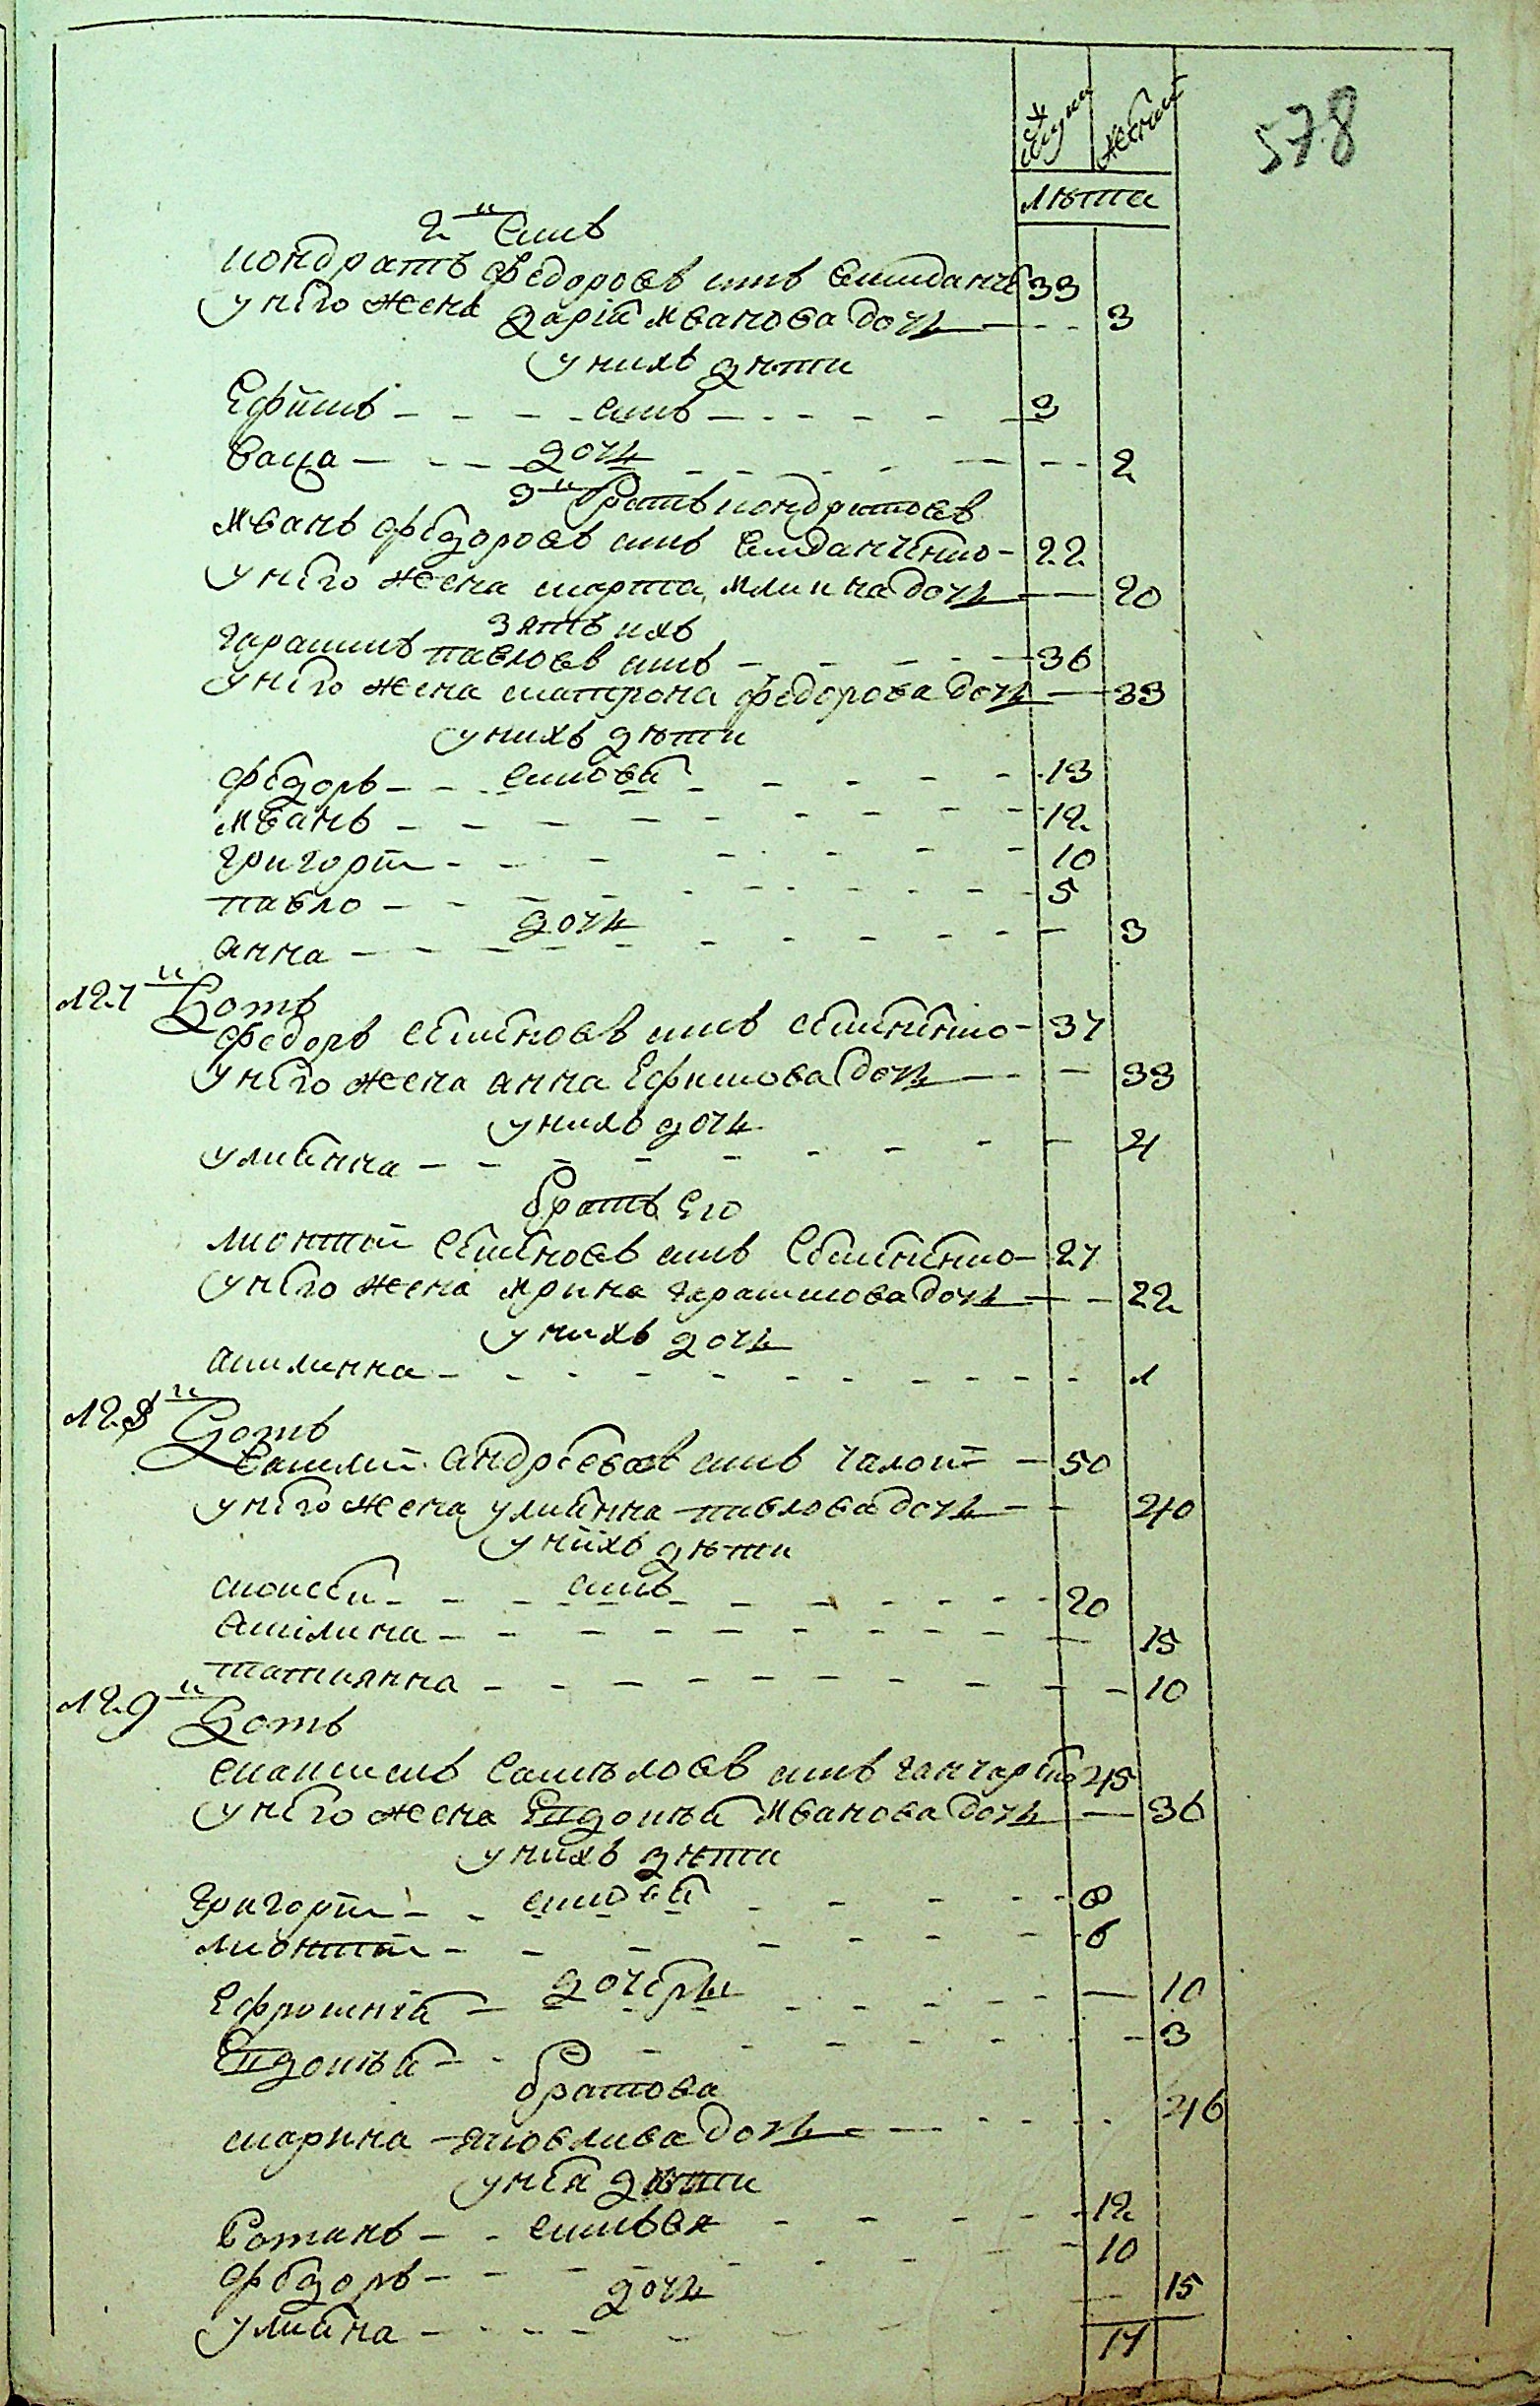 578
мужи женъ
лѣта
2й синъ
кондратъ федоровъ синъ 33
у него жена дарія иванова дочь 3
у нихъ дѣти
Ефимъ синъ 3
васа дочь 2
3й братъ кондратовъ
иванъ федоровъ синъ 22
у него жена марта илиина дочь 20
зять ихъ
гарасимъ павловъ синъ 36
у него жена матрона федорова дочь 33
у нихъ дѣти
федоръ синови 13
иванъ 12
григорій 10
павло 5
анна дочь 3
127й Домъ
федоръ семеновъ синъ семененко 37
у него жена анна Ефимова дочь 33
у нихъ дочь
улияна 4
братъ его
лионтій семеновъ синъ семененко 27
у него жена ирина гарасимова дочь 22
у нихъ дочь
акилинна 1
128й Домъ
василий андреевъ синъ чалой 50
у него жена улиянна павлова дочь 40
у нихъ дѣти
моисей синъ 20
акилина 15
татиянна 10
129й Домъ
самойловъ синъ ганчаренко 45
у него жена Евдокия иванова дочь 36
у нихъ дѣти
григорій синови 8
лионтій 6
Ефросинія дочери 10
Евдокия 3
братова
марина яковлива дочь 46
у нея дѣти
романъ синовя 12
федоръ 10
улияна дочь 15
17